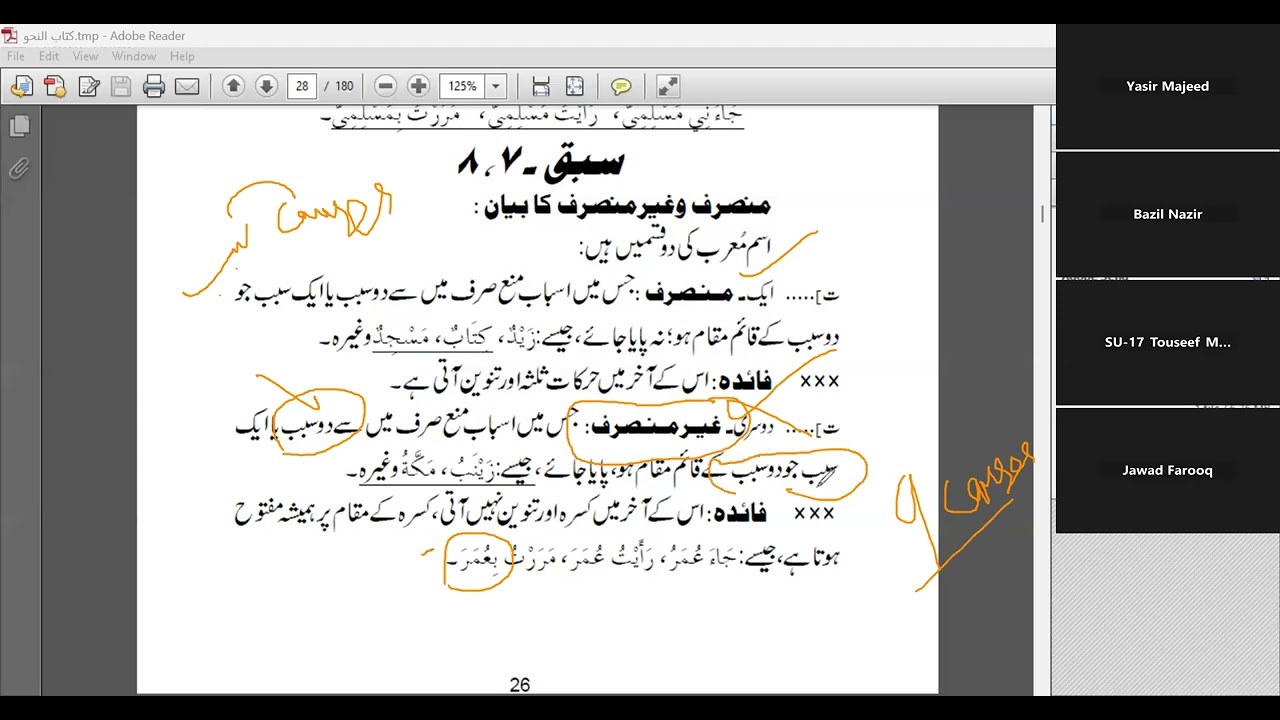 كتاب النحو.tmp - Adobe Reader
File Edit View Window Help
28 / 180 125%
جَاءَنِي مُسْلِمِيَّ، رَأَيْتُ مُسْلِمِيَّ، مَرَرْتُ بِمُسْلِمِيَّ۔
سبق۔۷، ۸
منصرف وغیر منصرف کا بیان :
اسم مُعرب کی دو قسمیں ہیں:
ت]..... ایک۔ منصرف : جس میں اسباب منع صرف میں سے دو سبب یا ایک سبب جو
دو سبب کے قائم مقام ہو؛ نہ پایا جائے، جیسے: زَیْدٌ، کِتَابٌ، مَسْجِدٌ وغیرہ۔
××× فائدہ : اس کے آخر میں حرکات ثلثہ اور تنوین آتی ہے۔
ت]..... دوسری۔ غیر منصرف : جس میں اسباب منع صرف میں سے دو سبب یا ایک
سبب جو دو سبب کے قائم مقام ہو، پایا جائے، جیسے: زَیْنَبُ، مَکَّةُ وغیرہ۔
××× فائدہ : اس کے آخر میں کسرہ اور تنوین نہیں آتی، کسرہ کے مقام پر ہمیشہ مفتوح
ہوتا ہے، جیسے: جَاءَ عُمَرُ، رَأَيْتُ عُمَرَ، مَرَرْتُ بِعُمَرَ۔
26
9 Causes
Yasir Majeed
Bazil Nazir
SU-17 Touseef M...
Jawad Farooq